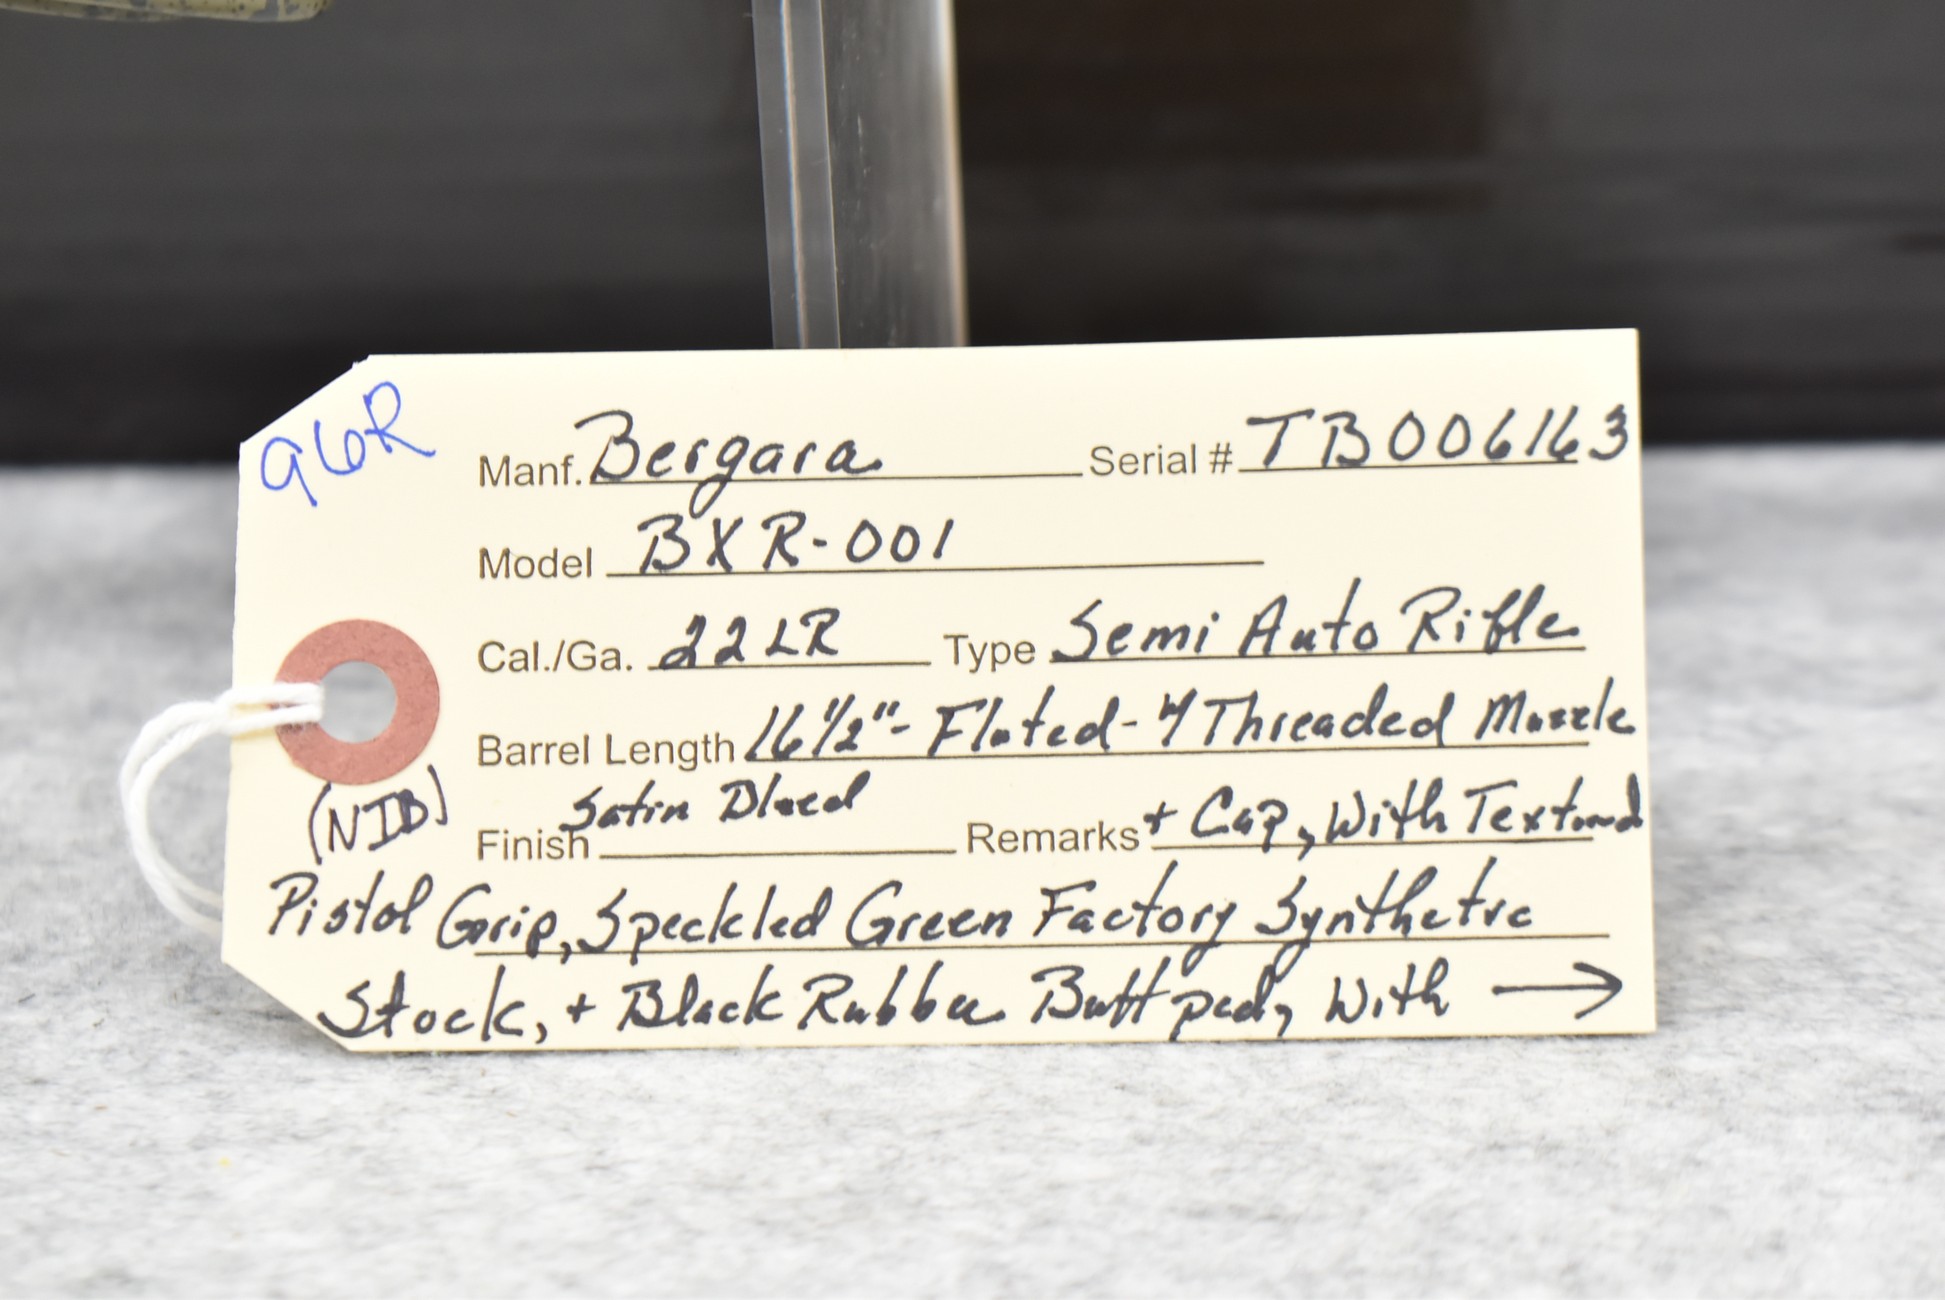 96R
Manf. Bergara Serial # TB006163
Model BXR-001
Cal./Ga. 22LR Type Semi Auto Rifle
Barrel Length 16 1/2" - Fluted - Threaded Muzzle
(NIB)
Finish Satin Blued Remarks + Cap, With Textured
Pistol Grip, Speckled Green Factory Synthetic
Stock, + Black Rubber Buttpad, With →